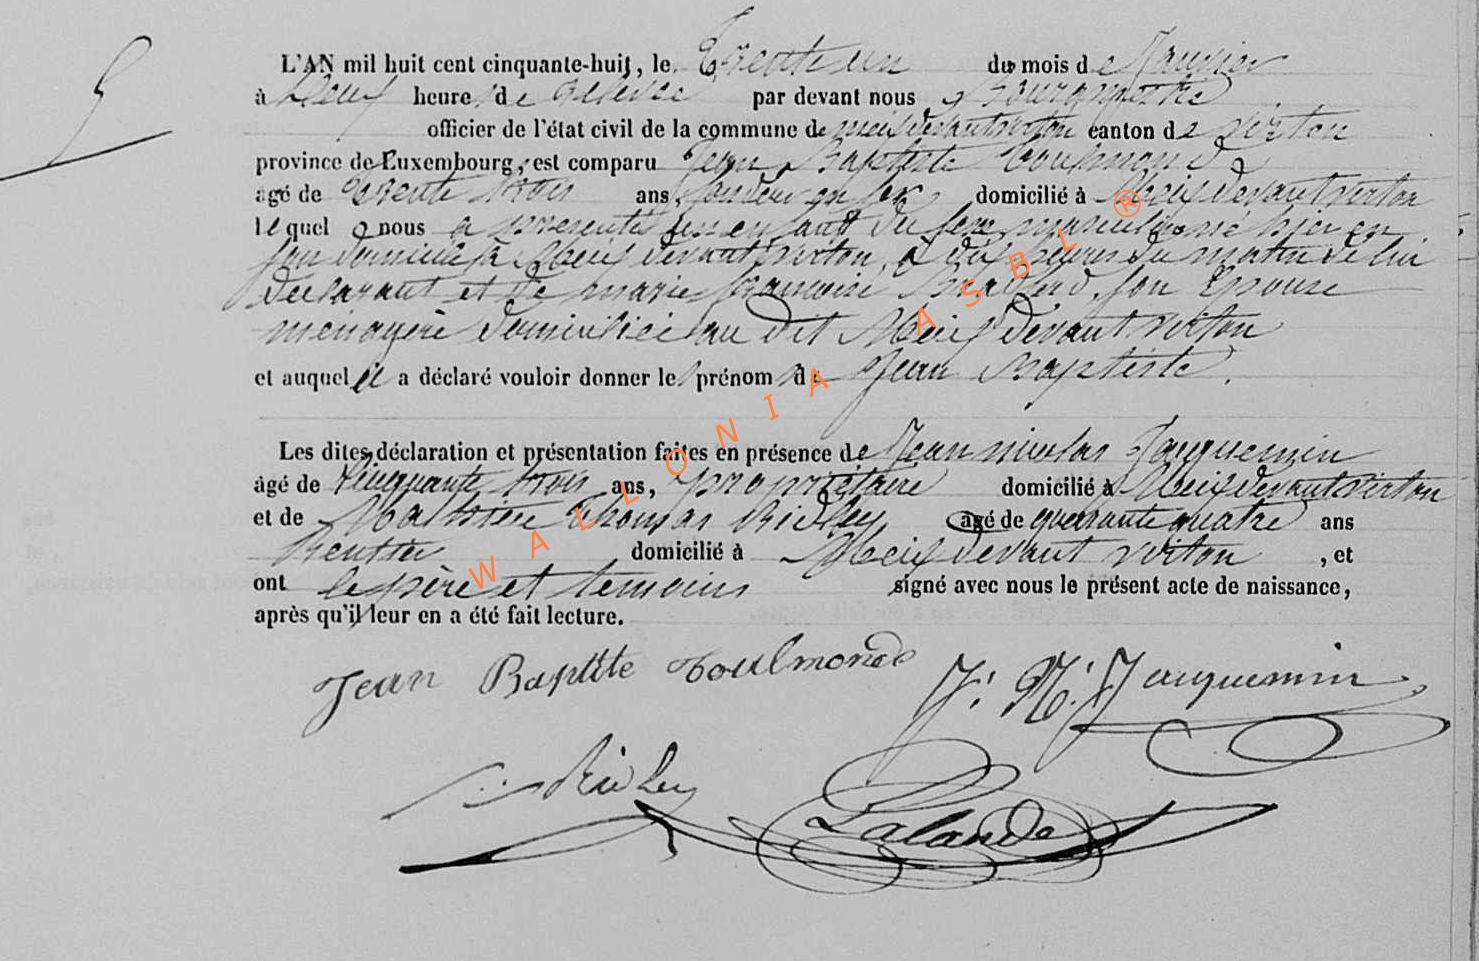 5
L'AN mil huit cent cinquante-huit, le Trente un du mois de Janvier
à Deux heure de relevée par devant nous Bourgmestre
officier de l'état civil de la commune de meix devant virton canton de virton
province de Luxembourg, est comparu Jean Baptiste Toulmonde
âgé de Trente trois ans, fondeur en fer domicilié à Meix devant virton
lequel nous a presenté un enfant du sexe masculin né hier en
son domicile à Meix devant virton, à dix heures du matin de lui
declarant et de marie françoise son Epouse
menagère domiciliée au dit Meix devant virton
et auquel il a déclaré vouloir donner le prénom de Jean Baptiste.
Les dites déclaration et présentation faites en présence de Jean nicolas Jacquemin
âgé de Cinquante trois ans, propriétaire domicilié à Meix devant virton
et de Thomas Ridley âgé de quarante quatre ans
Rentier domicilié à Meix devant virton , et
ont le père et temoins signé avec nous le présent acte de naissance,
après qu'il leur en a été fait lecture.
Jean Baptite Toulmonde J. N. Jacquemin
Ridley Lalande
WALLONIA ASBL ®